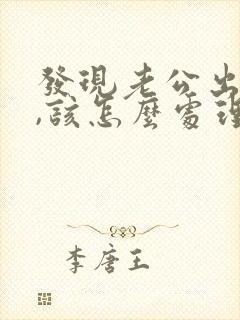 發現老公出
,該怎麼處理
李唐王